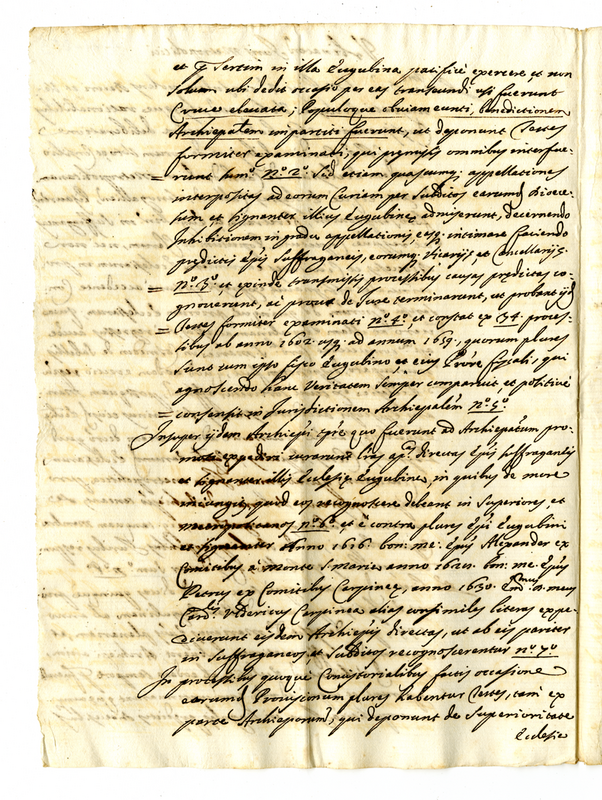 et p sertim in illa Eugubina pacificè exercere, et non
solum ubi dedit occasio per eas transeundi usi fuerunt
Cruce elevata; Populoque obviam eunti, Benedictionem
Archiepalem impartiti fuerunt, ut deponunt Testes
formiter examinati, qui pmissis omnibus interfue-
= runt sum.º n.º 2.º Sed etiam quascumq; appellationes
interpositas ad eorum Curiam per Subditos earumd Dioece-
sum et signanter illius Eugubinę admiserunt, decernendo
Inhibitionem in gradu appellationis, easq; intimare faciendo
predictis Epis Suffraganeis, eorumq; Vicarijs et Cancellarijs
= n.º 3.º et exinde transmissis processibus causas prędictas co-
gnoverunt, ac prout de Jure terminarunt, et probant ijd
= Testes formiter examinati n.º 4.º, et constat ex 34. proces-
sibus ab anno 1602. usq; ad annum 1659., quorum plures
sunt cum ipso fisco Eugubino et eius Prore fiscali, qui
agnoscendo hanc Veritatem semper comparuit et positivè
= consensit in Jurisdictionem Archiepalem n.º 5.º
Insuper ijdem Archiepi tpre quo fuerunt ad Archiepatum pro-
moti expediri curarunt lras directas Epis suffraganeis
et signanter illis Ecclesię Eugubinę, in quibus de more
iniungit, quod eos recognoscere debeant in Superiores et
n.º 6.º et è contra plures Epi Eugubini
et signanter Anno 1616. bon: me: Epus Alexander ex
Comitibus à Monte S. Marię, anno 1621. bon: me: Epus
Petrus ex Comitibus Carpineę, anno 1630. Emus D. meus
Card.lis Vldericus Carpinea alias consimiles literas expe-
diverunt eisdem Archiepis directas, ut ab eis pariter
in Suffraganeos et Subditos recognoscerentur n.º 7.º
In processibus quoque Consistorialibus factis occasione
earumd Provisionum plures habentur Testes, tam ex
parte Archieporum, qui deponunt de Superioritate
Ecclesię